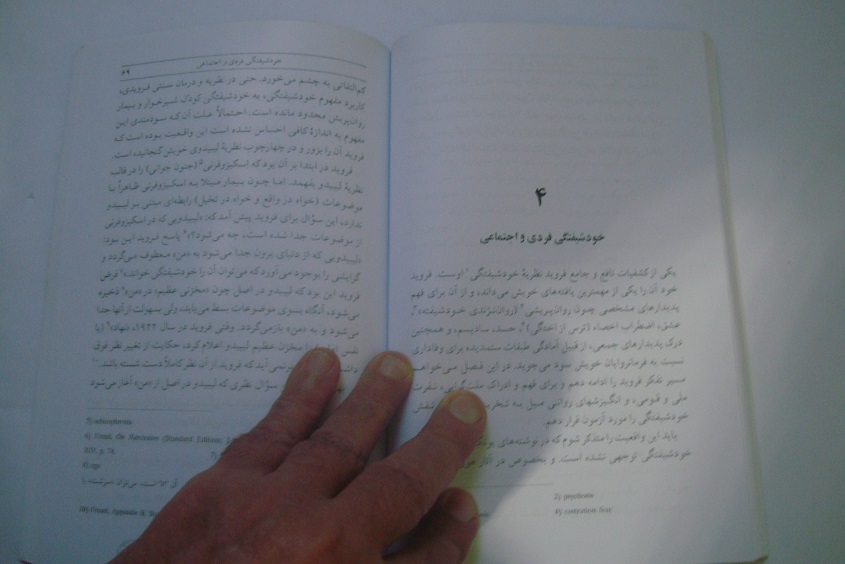 ۴
خودشیفتگی فردی و اجتماعی
یکی از کشفیات نافع و جامع فروید نظریهٔ خودشیفتگی۱ اوست. فروید
خود آن را یکی از مهمترین یافته‌های خویش می‌داند، و از آن برای فهم
پدیدارهای مشخصی چون روان‌پریشی۲ (روان‌نژندی خودشیفته)،
عشق، اضطراب اخصاء (ترس از اختگی)۴، حسد، سادیسم، و همچنین
درک پدیدارهای جمعی، از قبیل آمادگی طبقات ستمدیده برای وفاداری
نسبت به فرمانروایان خویش سود می‌جوید. در این فصل می‌خواهم
مسیر تفکر فروید را ادامه دهم و برای فهم و ادراک ملت‌گرایی، نفرت
ملی و قومی، و انگیزشهای روانی میل به نقش
خودشیفتگی را مورد آزمون قرار دهم.
باید این واقعیت را متذکر شوم که در نوشته‌های
خودشیفتگی توجهی نشده است. و بخصوص در آثار
2) psychosis
4) castration fear
خودشیفتگی فردی و اجتماعی ۶۹
کم‌التفاتی به چشم می‌خورد. حتی در نظریه و درمان سنتی فرویدی،
کاربرد مفهوم خودشیفتگی، به خودشیفتگی کودک شیرخوار و بیمار
روان‌پریش محدود مانده است. احتمالاً علت آن که سودمندی این
مفهوم به اندازهٔ کافی احساس نشده است این واقعیت بوده است که
فروید آن را بزور و در چهارچوب نظریهٔ لیبیدوی خویش گنجانیده است.
فروید در ابتدا بر آن بود که اسکیزوفرنی۵ (جنون جوانی) را در قالب
نظریهٔ لیبیدو بفهمد. اما چون بیمار مبتلا به اسکیزوفرنی ظاهراً با
موضوعات (خواه در واقع و خواه در تخیل) رابطه‌ای مبتنی بر لیبیدو
ندارد، این سؤال برای فروید پیش آمد که: «لیبیدویی که در اسکیزوفرنی
از موضوعات جدا شده است، چه می‌شود؟»۶ پاسخ فروید این بود:
«لیبیدویی که از دنیای برون جدا می‌شود به «من» معطوف می‌گردد و
گرایشی را بوجود می‌آورد که می‌توان آن را خودشیفتگی خواند.»۷ فرض
فروید این بود که لیبیدو در اصل چون «مخزنی عظیم» در «من»۸ ذخیره
می‌شود، آنگاه بسوی موضوعات بسط می‌یابد، ولی بسهولت از آنها جدا
می‌شود و به «من» بازمی‌گردد. وقتی فروید در سال ۱۹۲۲، «نهاد»۹ (یا
نفس را مخزن عظیم لیبیدو اعلام کرد، حکایت از تغییر نظر فوق
برنمی‌آید که فروید، از آن نظر کاملاً دست شسته باشد.
سؤال نظری که لیبیدو در اصل از «من» آغاز می‌شود
5) schizophrenia
6) Freud, On Narcissism (Standard Edition),
XIV, p. 74.
8) ego
10) Freud, Appendix B,